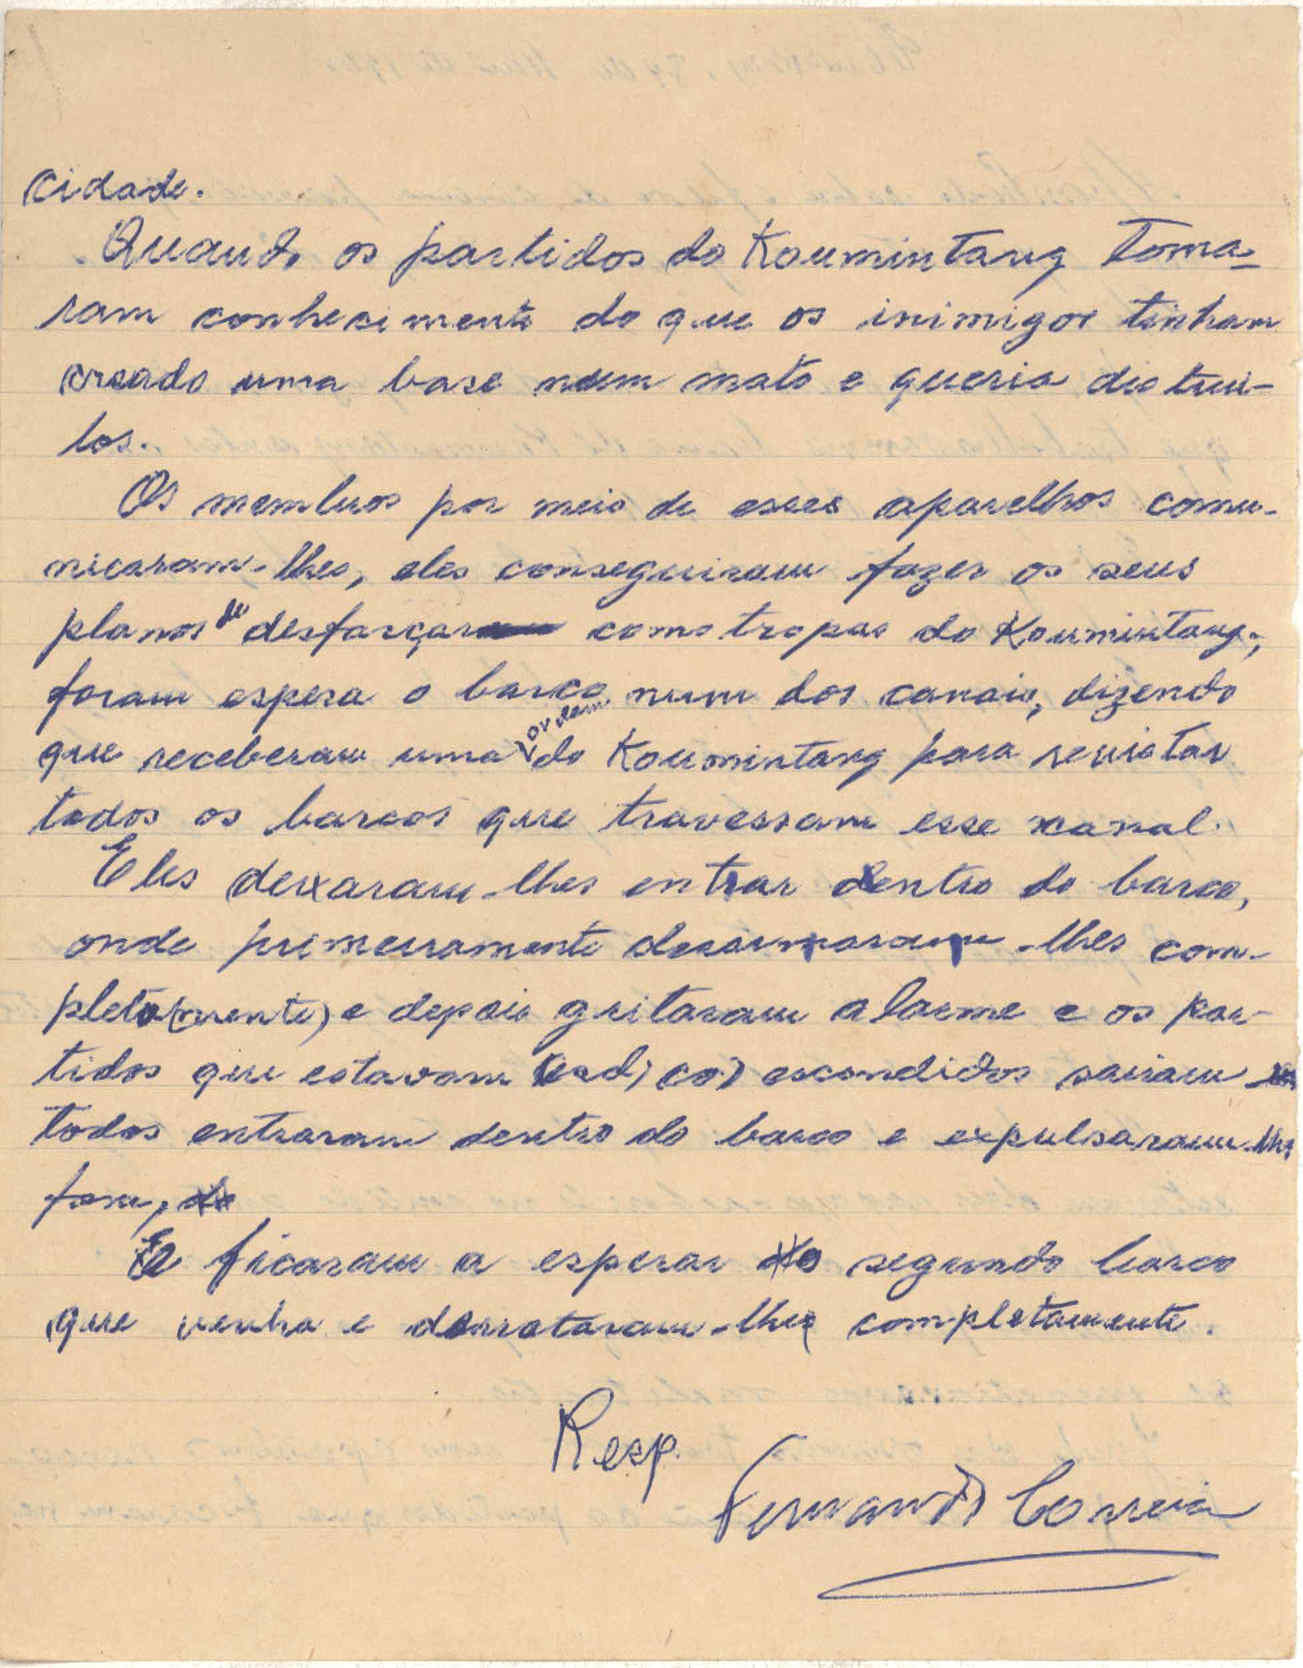 cidade.
Quando os partidos do Koumintang toma-
ram conhecimento do que os inimigos tinham
creado uma base num mato e queria distrui-
los.
Os membros por meio de esses aparelhos comu-
nicaram-lhes, eles conseguiram fazer os seus
planos de desfarçar como tropas do Koumintang,
foram espera o barco num dos canais, dizendo
que receberam uma ordem do Koumintang para revistar
todos os barcos que travessam esse canal.
Eles deixaram-lhes entrar dentro do barco,
onde primeiramente desarmaram-lhes com-
pleta(mente) e depois gritaram alarme e os par-
tidos que estavam escondidos sairam
todos entraram dentro do barco e expulsaram-lhes
fora,
E ficaram a esperar o segundo barco
que venha e derrotaram-lhes completamente.
Resp.
Fernando Correia